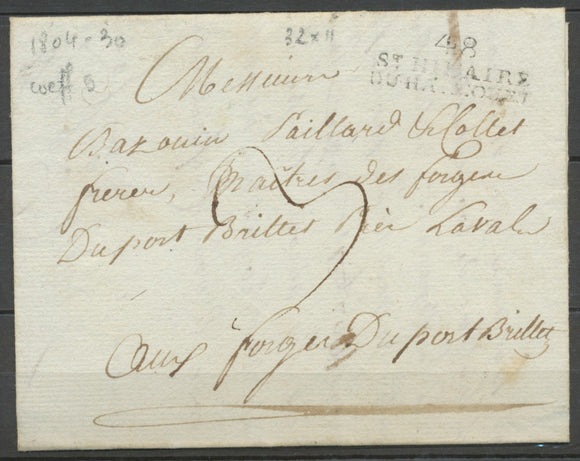 1804-30
32x11
coeff 5
48
ST HILAIRE
DU HARCOUET
Messieurs
Bazouin Paillard & Collet
freres, Maîtres des forges
Du port Brillet Près Laval
3
aux forges Du port Brillet